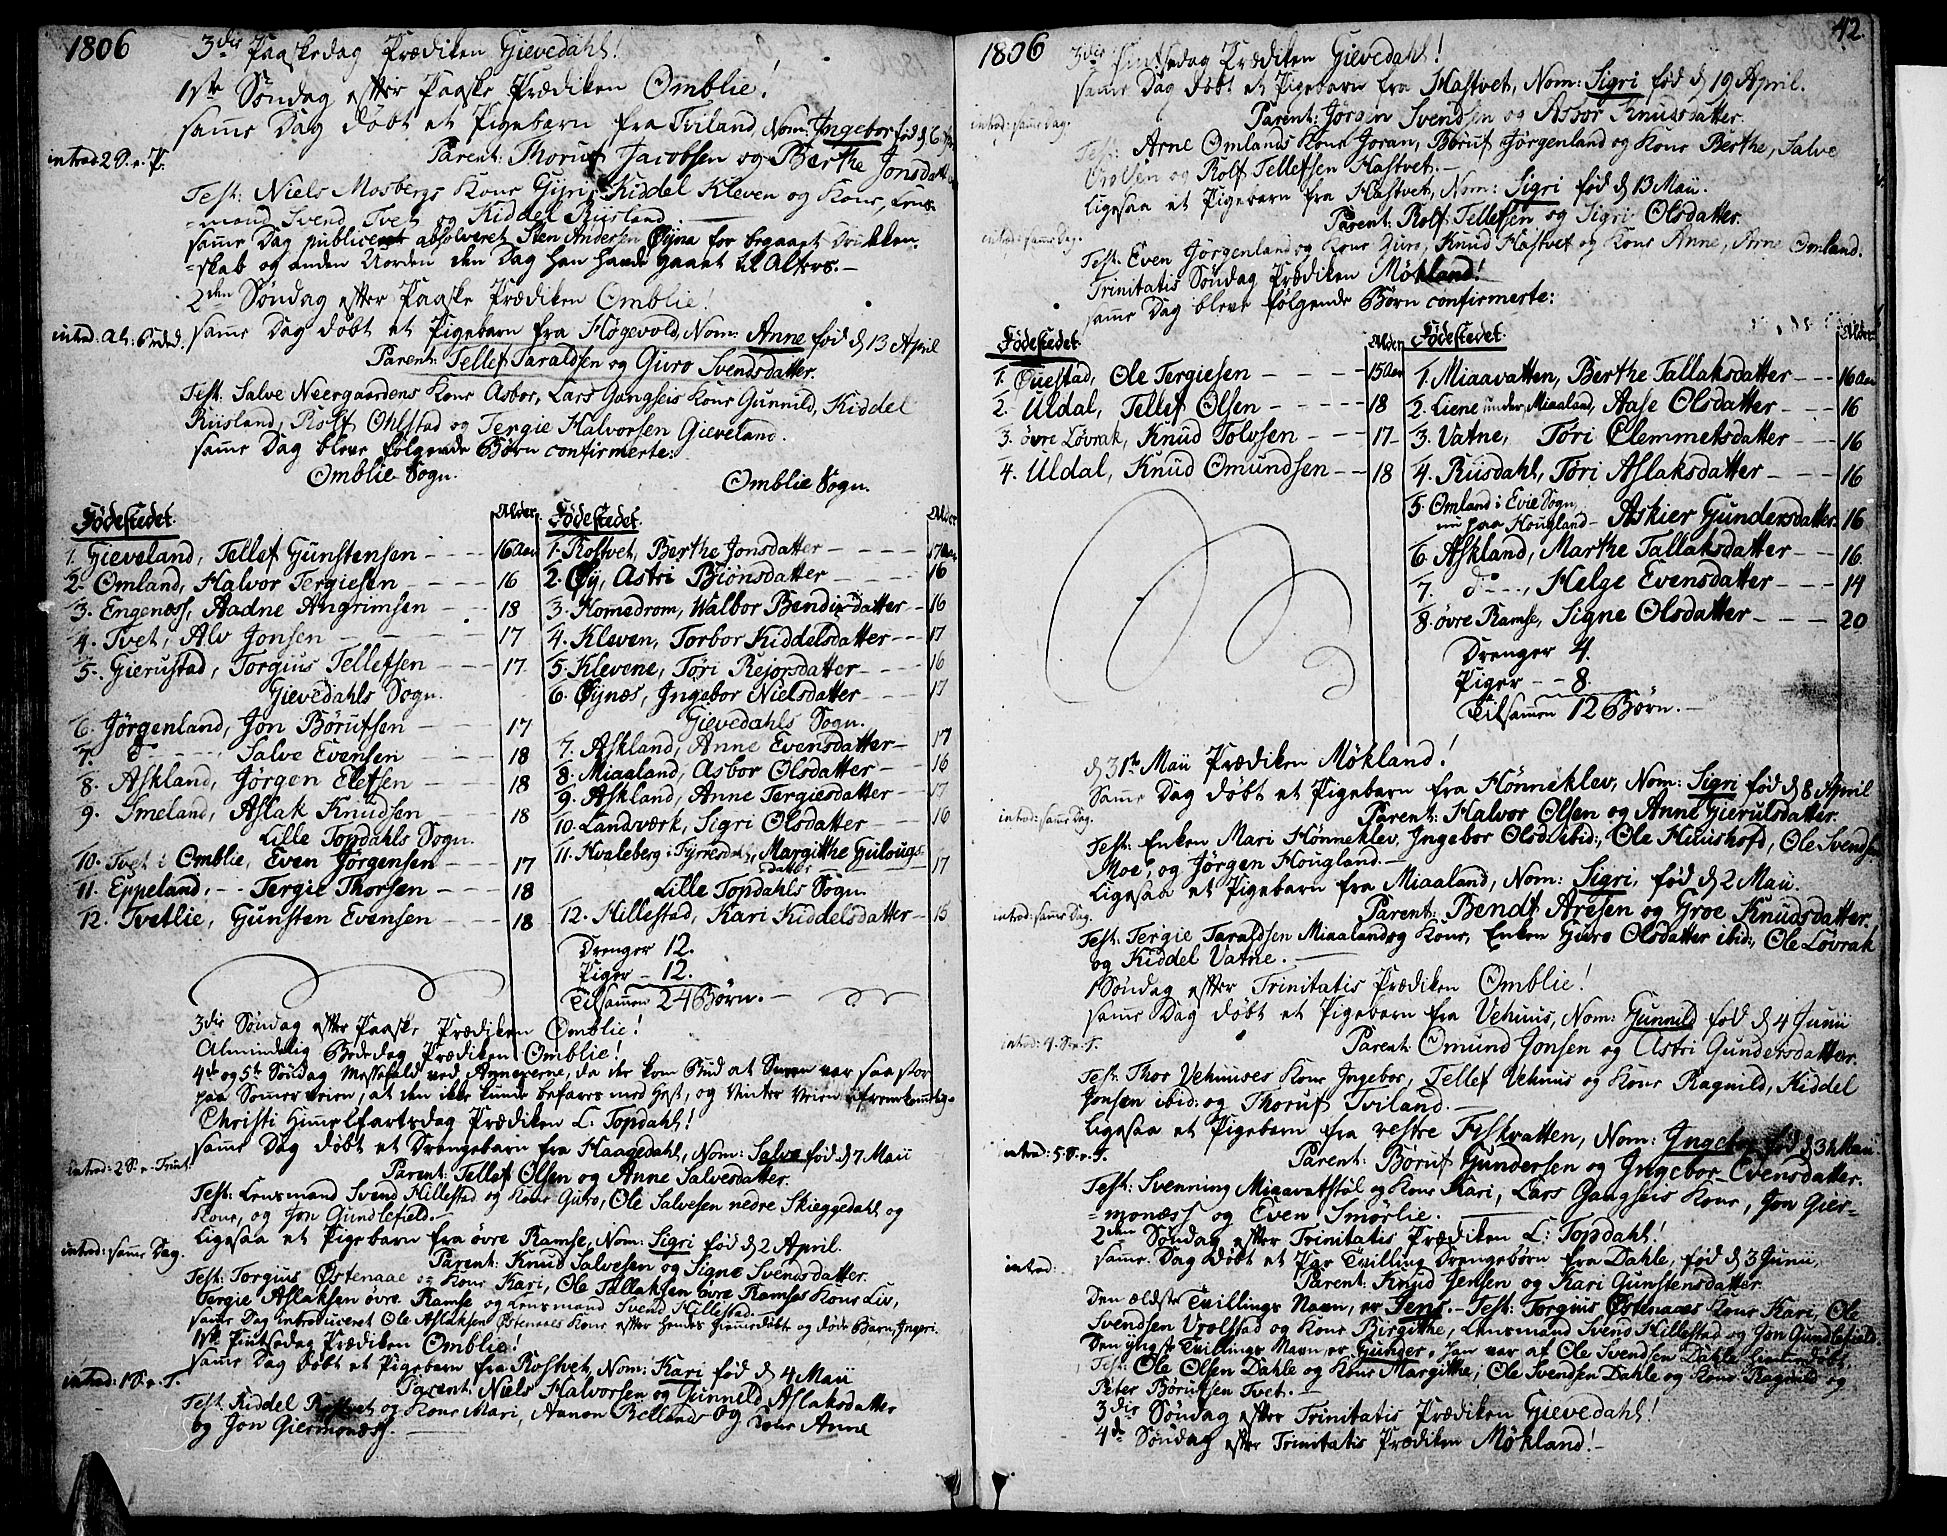 1806
3die Paaskedag Prædiken Gievedahl!
1ste Søndag efter Paaske Prædiken Omblie!
samme Dag døbt et Pigebarn fra Tviland, Nom: Ingebor fød d 6
introd 2 S. e. P.
Parent: Thoruf Jacobsen og Berthe Jonsdatter
Test: Niels Mosbergs Kone Gyri, Kiddel Kleven og Kone, Lens-
=mand Svend Tvet og Kiddel Rijsland.
samme Dag publice absolveret Sten Andersen Øyna for begaaet Drukken-
=skab og anden Uorden den Dag han havde gaaet til Alters.-
2den Søndag efter Paaske Prædiken Omblie!
samme Dag døbt et Pigebarn fra Høgevold, Nom: Anne fød d 13 April
introd. Al: Beded.
Parent: Tellef Taraldsen og Guro Svendsdatter.
Test: Salve Neergaardens Kone Asbor, Lars Gangseis Kone Gunnild, Kiddel
Riisland, Rolf Ohlstad og Tergie Halvorsen Gieveland.
samme Dag bleve følgende Børn confirmerte:
Omblie Sogn.
Fødestedet. Alder.
1. Gieveland, Tellef Gunstensen - - - 16 Aar
2. Omland, Halvor Tergiesen - - - 16
3. Engenæss, Aadne Angrimsen - - 18
4. Tvet, Alv Jonsen - - - 17
5. Gierustad, Torgius Tellefsen - - 17
Gievedahls Sogn.
6. Jörgenland, Jon Börufsen - - 17
7. d - - - Salve Evensen - - 18
8. Askland, Jørgen Elefsen - - 18
9. Smeland, Aslak Knudsen - - 18
Lille Topdahls Sogn.
10. Tvet i Omblie, Even Jørgensen - - 17
11. Eppeland, - - Tergie Thorsen - - 18
12. Tvetlie, Gunsten Evensen - - 18
Omblie Sogn.
Fødestedet. Alder
1. Rostvet, Berthe Jonsdatter - - - 17 Aar
2. Øy, Astri Biönsdatter - - - 16
3. Homedrom, Walbor Bendixdatter - 16
4. Kleven, Torbor Kiddelsdatter - - 17
5. Klevene, Töri Rejorsdatter - - - 16
6. Øynæs, Ingebor Nielsdatter - - - 17
Gievedahls Sogn.
7. Askland, Anne Evensdatter - 17
8. Miaaland, Asbor Olsdatter - - 16
9. Askland, Anne Tergiesdatter - - 17
10. Landværk, Sigri Olsdatter - - - 16
11. Kvaleberg i Fyrresdal, Margithe Gulougs-
datter - - - 17
Lille Topdahls Sogn.
12. Hillestad, Kari Kiddelsdatter - 15
Drenger 12.
Piger - 12.
Tilsamen 24 Børn. -
3die Søndag efter Paaske Prædiken Omblie!
Almindelig Bededag Prædiken Omblie!
4de og 5te Søndag Messefald ved Annexerne, da der kom Bud at Sneen var saa stor
paa Sommerveien, at den ikke kunde befares med Hest, og Vinter Veien ufremkommelig.
Christi Himmelfartsdag Prædiken L. Topdahl!
samme Dag døbt et Drengebarn fra Haagedahl, Nom: Salve fød d 7 Maii
introd: 2 S. e. Trint.
Parent: Tellef Olsen og Anne Salvesdatter.
Test: Lensmand Svend Hillestad og Kone Guro, Ole Salvesen nedre Skieggedahl og
Kone, og Jon Gundlefield.-
Ligesaa et Pigebarn fra övre Ramse, Nom: Sigri fød d 2 April.
introd: samme Dag.
Parent: Knud Salvesen og Signe Svendsdatter.
Test: Torgius Østenaae og Kone Kari, Ole Tallaksen övre Ramses Kone Liv,
Tergie Aslaksen övre Ramse og Lensmand Svend Hillestad.
samme Dag introduceret Ole Aslaksen Østenaaes Kone efter hendes hjemmedøbte og døde Barn, Ingeri.
1ste Pintsedag Prædiken Omblie!
samme Dag døbt et Pigebarn fra Rostvet, Nom: Kari fød d 4 Maii
introd: 1 S. e. T.
Parent: Niels Halvorsen og Gunnild Aslaksdatter
Test: Kiddel Rostvet og Kone Mari, Aanon Belland og Kone Anne
og Jon Giermonæss.
1806 42.
3die Pintsedag Prædiken Gievedahl!
samme Dag døbt et Pigebarn fra Hastvet, Nom: Sigri fød d 19 April.
introd: samme Dag.
Parent: Jörgen Svendsen og Asbor Knudsdatter.
Test: Arne Omlands Kone Joran, Böruf Jörgenland og Kone Berthe, Salve
Vrolsen og Rolf Tellefsen Hastvet.-
Ligesaa et Pigebarn fra Hastvet, Nom: Sigri fød d 13 Maii.
introd: samme Dag.
Parent: Rolf Tellefsen og Sigri Olsdatter.
Test: Even Jörgenland og Kone Guro, Knud Hastvet og Kone Anne, Arne Omland.
Trinitatis Søndag Prædiken Mökland!
samme Dag bleve følgende Børn confirmerte:
Fødestedet Alder
1. Øuestad, Ole Tergiesen - - - - 15 Aar
2. Uldal, Tellef Olsen - - - - - 18
3. övre Lövrak, Knud Tolvsen - - - 17
4. Uldal, Knud Omundsen - - 18
Fødestedet. Alder
1. Miaavatten, Berthe Tallaksdatter - - - 16 Aar
2. Liene under Miaaland, Aase Olsdatter - - - 16
3. Vatne, Töri Clemmetsdatter - - - 16
4. Riisdahl, Töri Aslaksdatter - - - 16
5. Omland i Evie Sogn,
nu paa Hougland - Askier Gundersdatter - 16
6. Askland, Marthe Tallaksdatter - - 16.
7. d - - -, Helge Evensdatter - - - 14
8. övre Ramse, Signe Olsdatter - - - 20
Drenger 4.
Piger - - 8.
Tilsamen 12 Børn. -
d 31te Maii Prædiken Mökland!
Samme Dag døbt et Pigebarn fra Hönneklev, Nom: Sigri fød d 8 April
introd: samme Dag.
Parent: Halvor Olsen og Anne Gierulsdatter.
Test: Enken Mari Hönneklev, Ingebor Olsd. ibid:, Ole Huushofd, Ole Svendsen
Moe, og Jörgen Hougland.-
Ligesaa et Pigebarn fra Miaaland, Nom: Sigri, fød d 2 Maii.
introd: samme Dag.
Parent: Bendt Aresen og Groe Knudsdatter.
Test: Tergie Taraldsen Miaaland og Kone, Enken Guro Olsdatter ibid:, Ole Lövrak
og Kiddel Vatne.-
1 Søndag efter Trinitatis Prædiken Omblie!
samme Dag døbt et Pigebarn fra Vehuus, Nom: Gunnild fød d 4 Junii
introd: 4. S. e. T.
Parent: Omund Jonsen og Astri Gundersdatter.
Test: Thor Vehuuses Kone Ingebor, Tellef Vehuus og Kone Ragnild, Kiddel
Jonsen ibid: og Thoruf Tviland.-
Ligesaa et Pigebarn fra vestre Fiskvatten, Nom: Ingebor fød d 31 Maii
introd: 5 S. e. T.
Parent: Boruf Gundersen og Ingebor Evensdatter.
Test: Svenning Miaavatstöl og Kone Kari, Lars Gangseis Kone, Jon Gier-
=monæss og Even Smörlie.-
2den Søndag efter Trinitatis Prædiken L: Topdahl!
samme Dag døbt et Par Tvilling Drengebørn fra Dahle, fød d 3 Junii,
introd:
Parent: Knud Jensen og Kari Gunstensdatter
Den ældste Tvillings Navn, er Jens.- Test: Torgius Østenaaes Kone Kari, Ole
Svendsen Vrolstad og Kone Birgithe, Lensmand Svend Hillestad og Jon Gundlefield.
Den yngste Tvillings Navn er Gunder. Han var af Ole Svendsen Dahle hjemmedøbt.
Test: Ole Olsen Dahle og Kone Margithe, Ole Svendsen Dahle og Kone Ragnild og
Peter Børufsen Tvet.-
3die Søndag efter Trinitatis Prædiken Gievedahl!
4de Søndag efter Trinitatis Prædiken Mökland!-